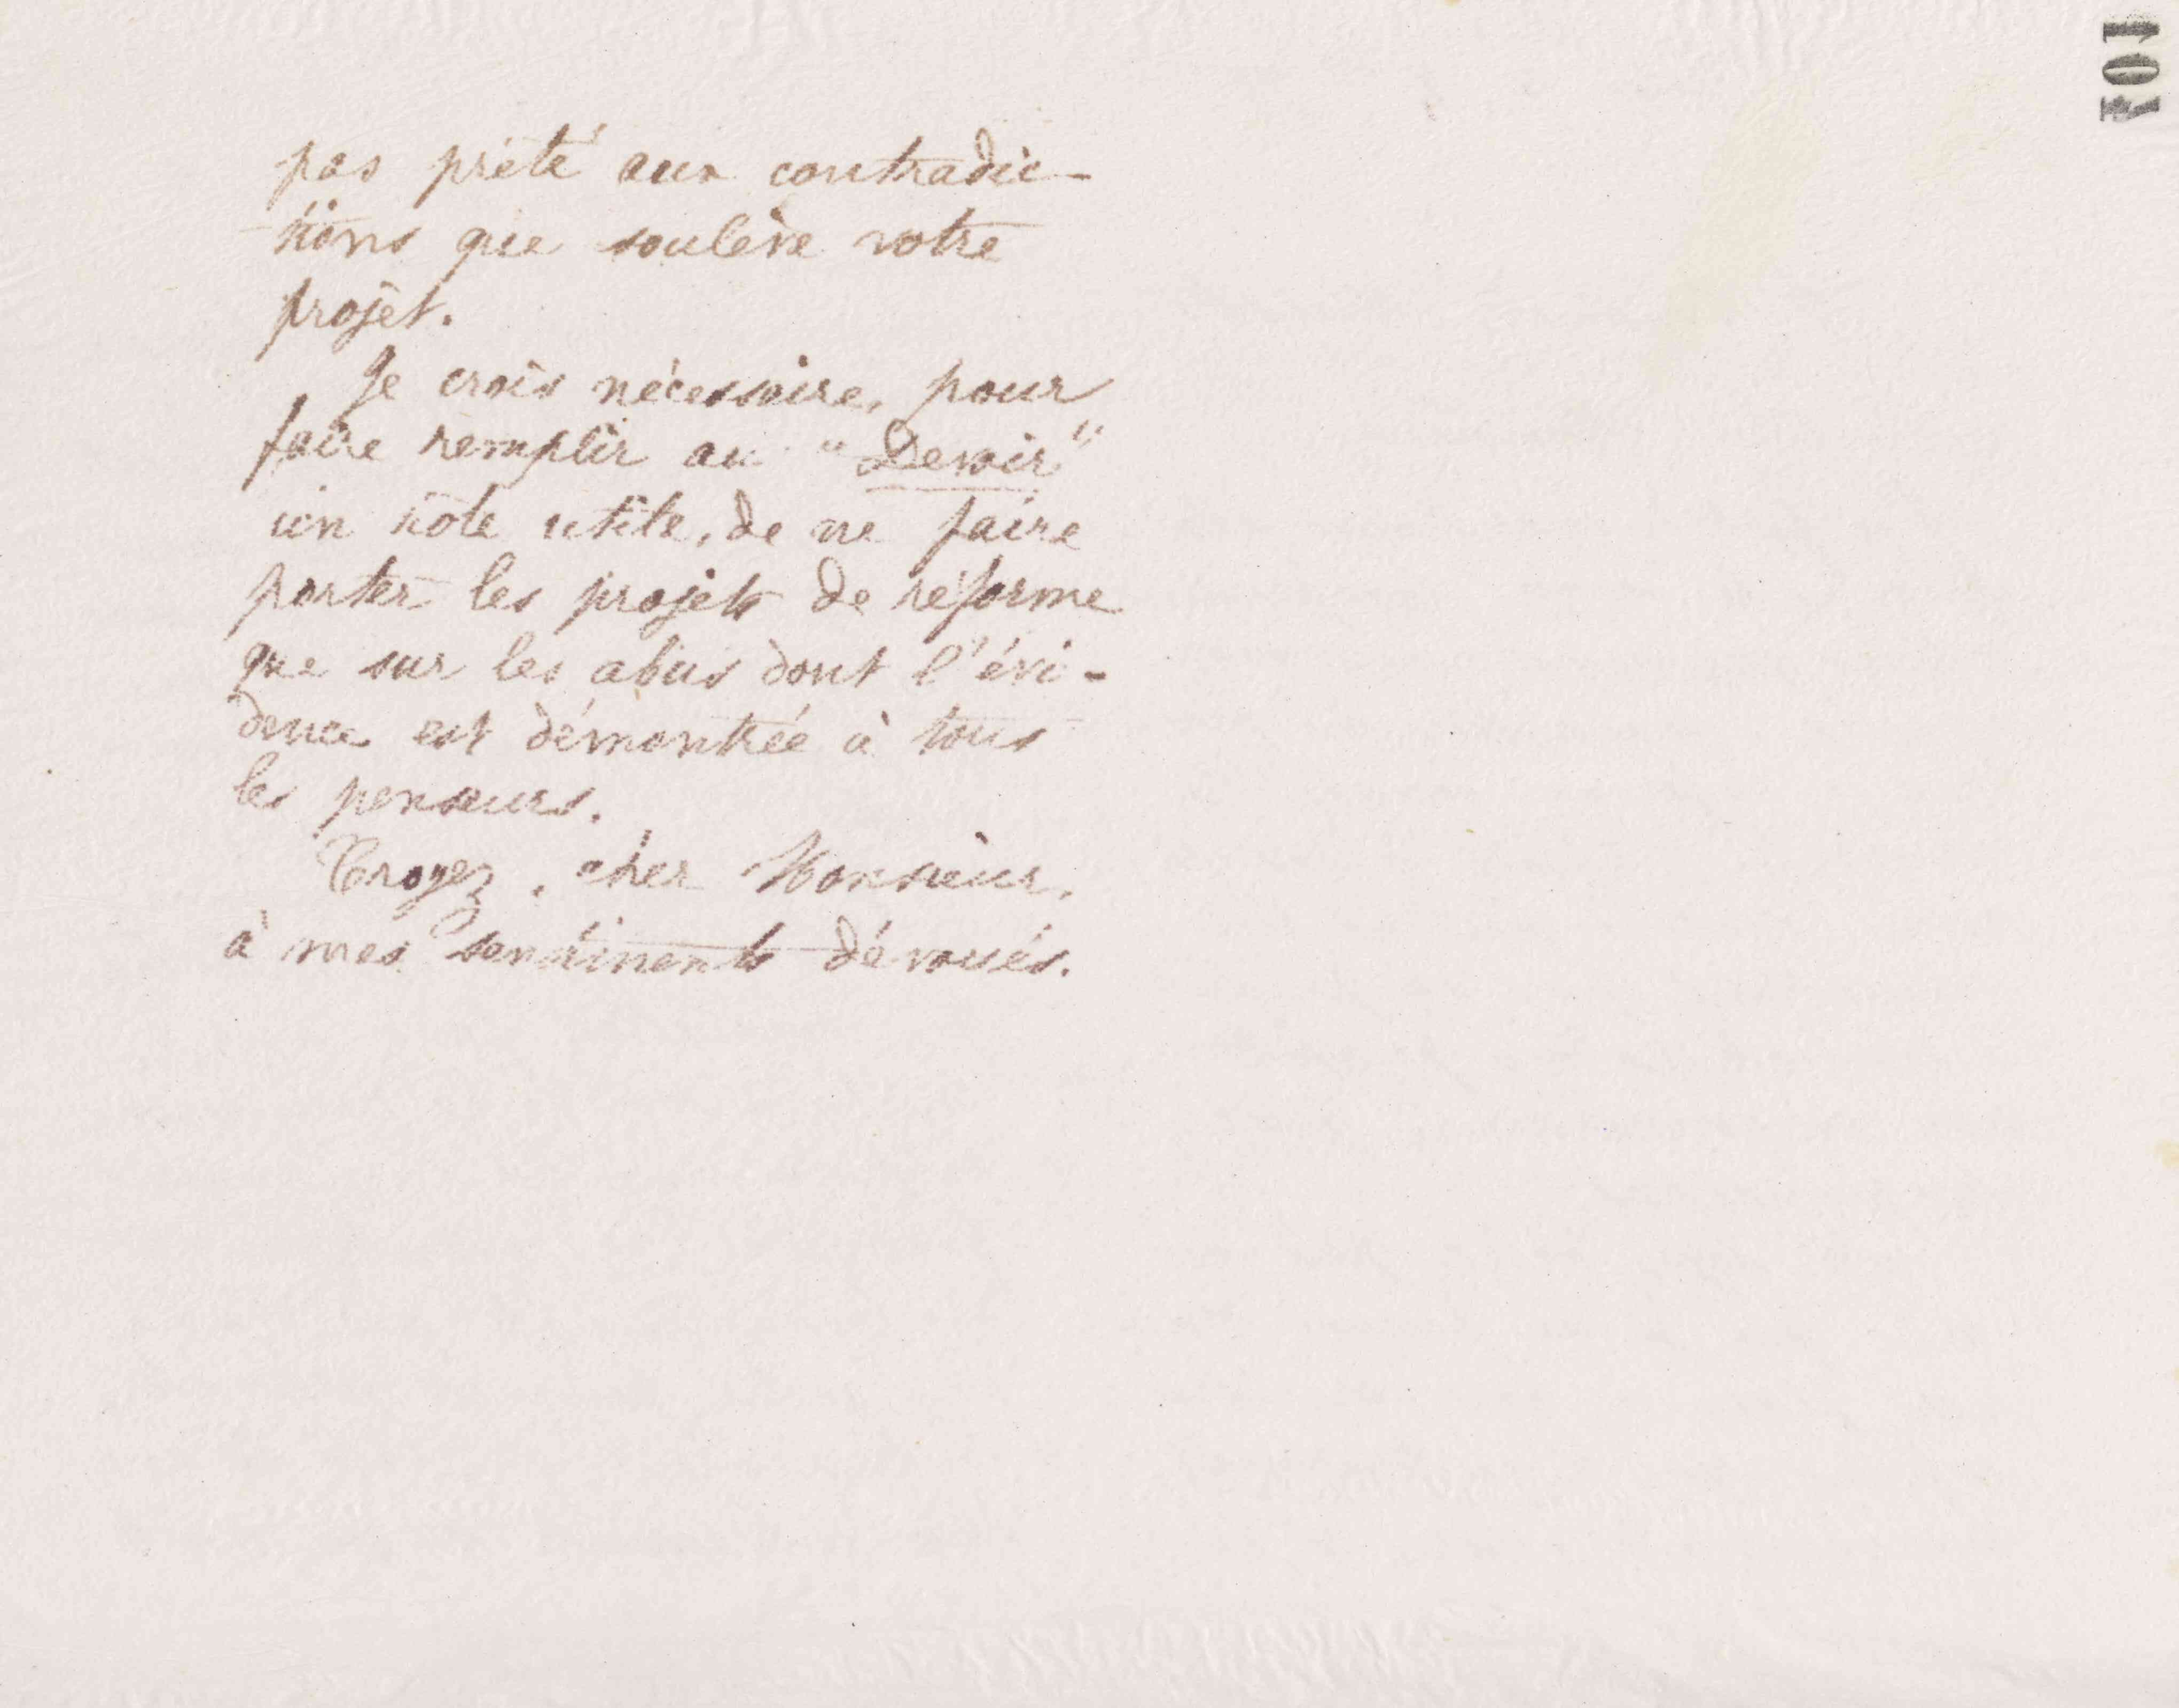 pas prêté aux contradic-
tions que soulève votre
projet.
Je crois nécessaire, pour
faire remplir au "Devoir"
un rôle utile, de ne faire
porter les projets de réforme
que sur les abus dont l'évi-
dence est démontrée à tous
les penseurs.
Croyez, cher Monsieur,
à mes sentiments dévoués.